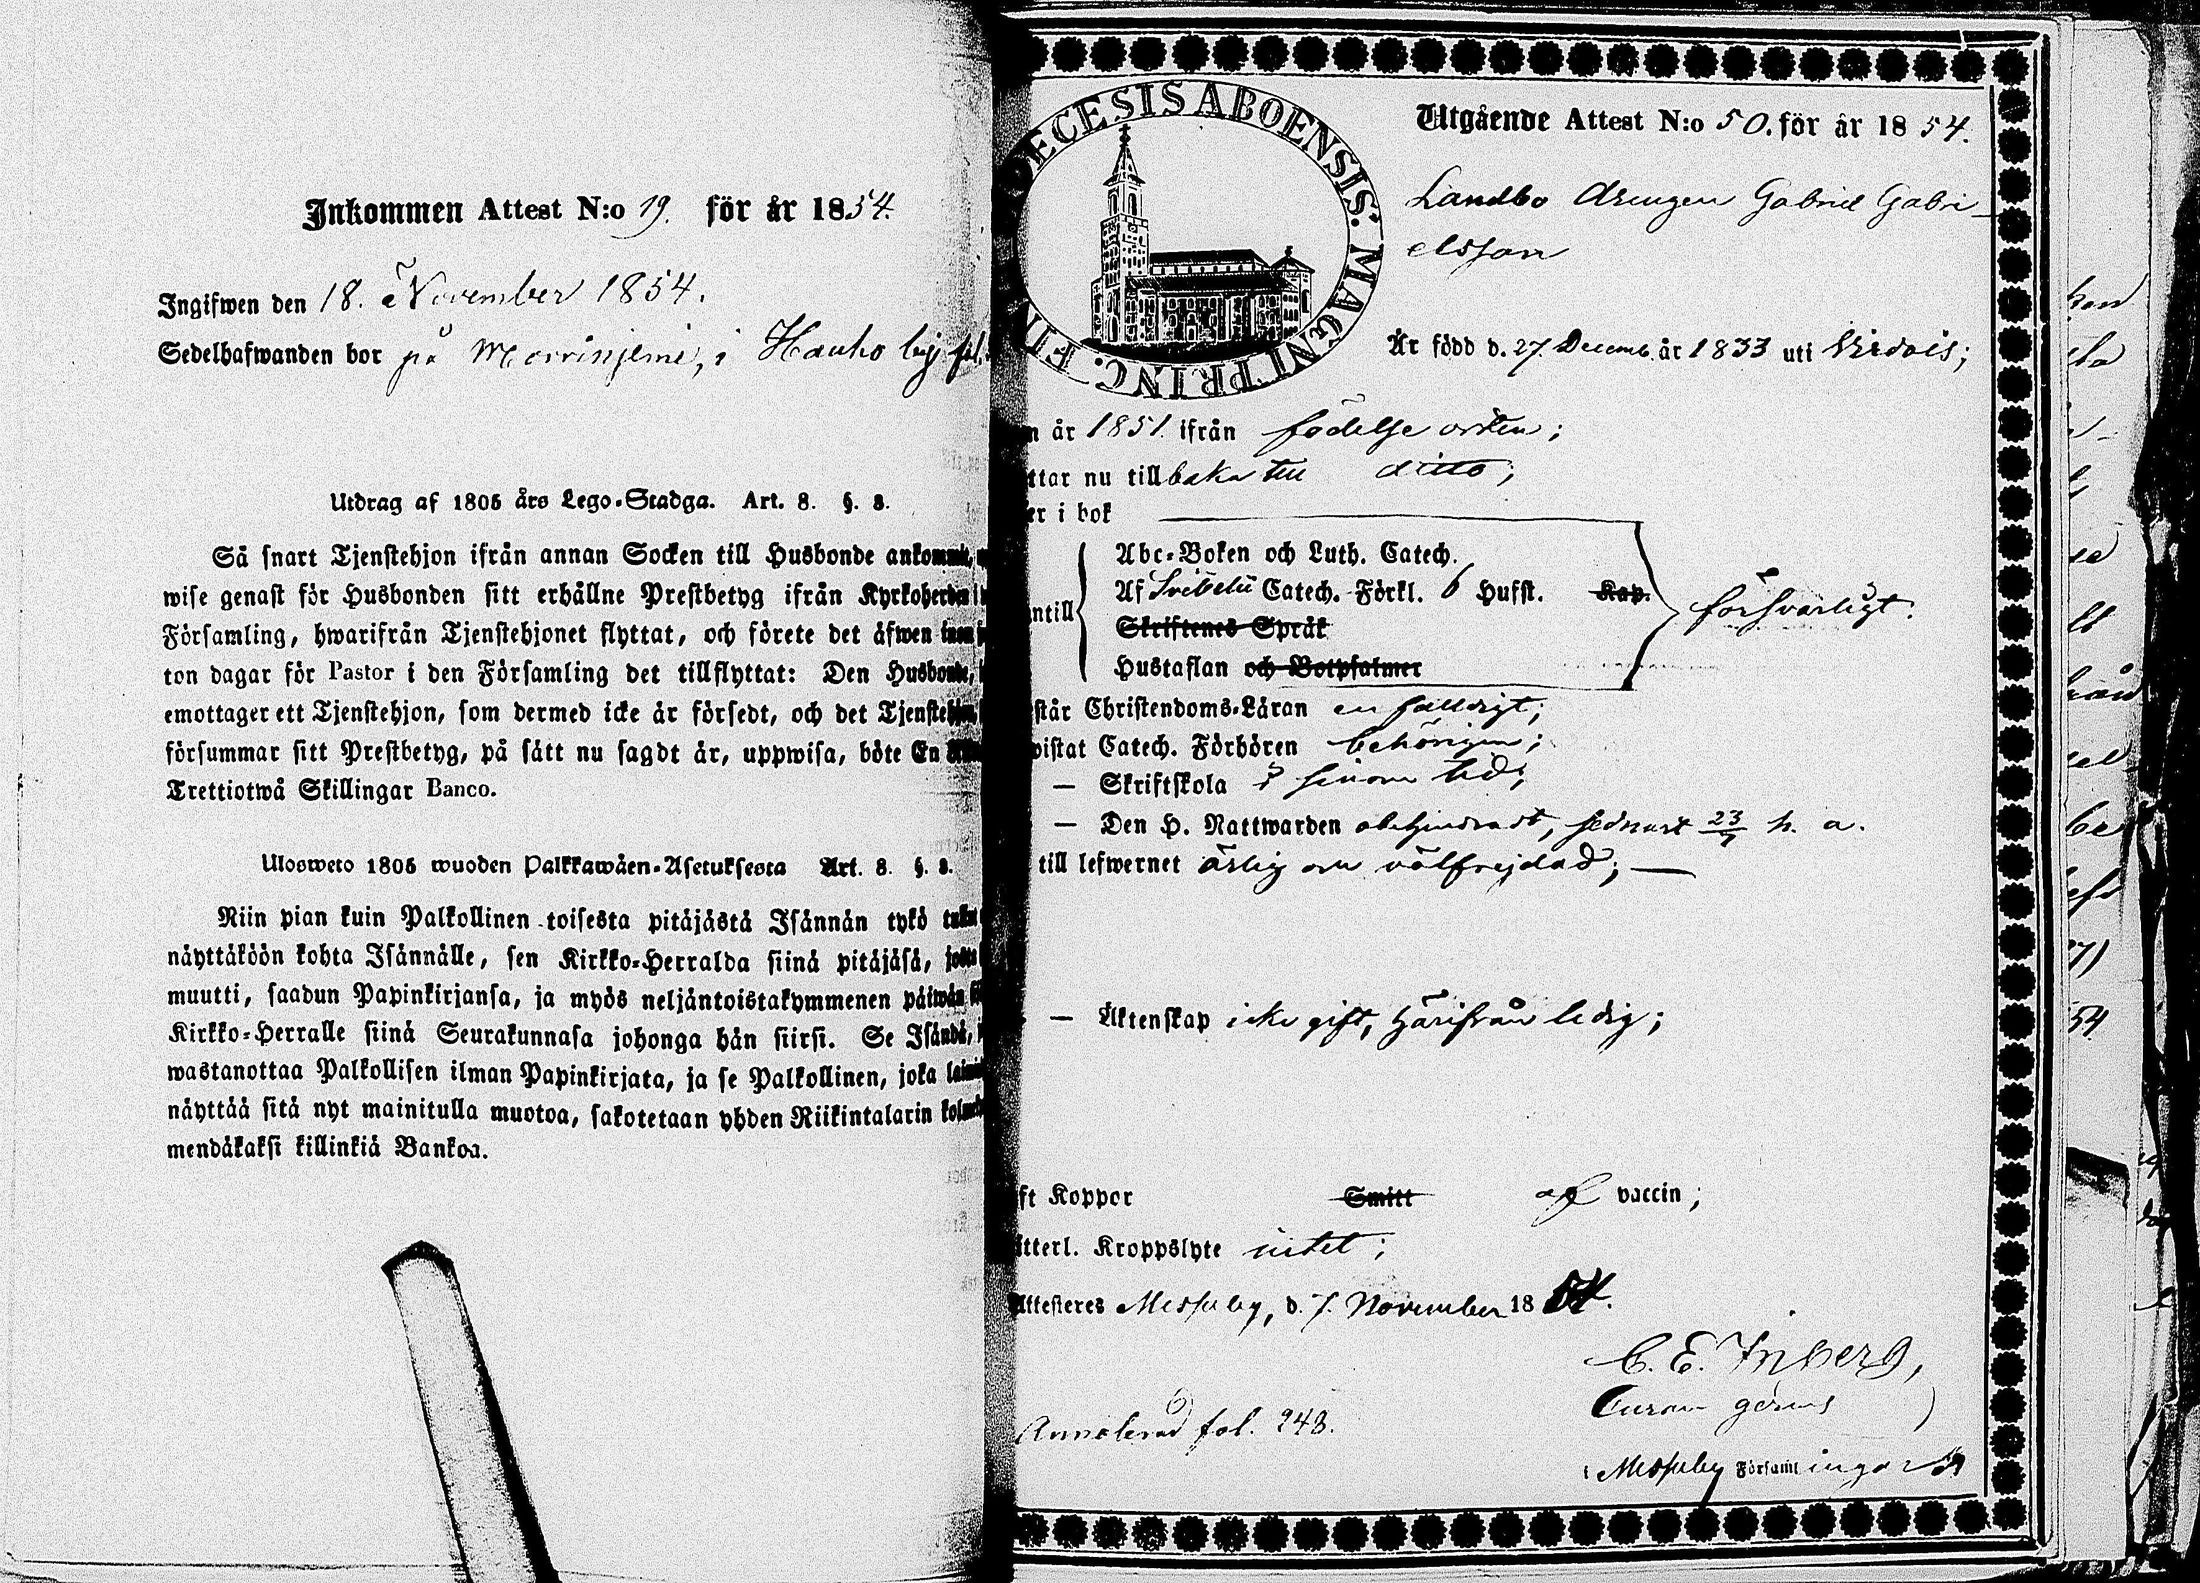 Inkommen Attest N:o 19. för år 1854.
Ingifwen den 18. November 1854.
Sedelhafwanden bor på i Hauho
Utdrag af 1805 års Lego-Stadga. Art. 8. §. 8.
Så snart Tjenstehjon ifrån annan Socken till Husbonde
wise genast för Husbonden sitt erhållne Prestbetyg ifrån Kyrkoherden i
Församling, hwarifrån Tjenstehjonet flyttat, och förete det äfwen
ton dagar för Pastor i den Församling det tillflyttat: Den
emottager ett Tjenstehjon, som dermed icke är försedt, och det
försummar sitt Prestbetyg, på sätt nu sagdt är, uppwisa, böte En
Trettiotwå Skillingar Banco.
Ulosweto 1805 wuoden Palkkawäen-Asetuksesta Art. 8. §. 8.
Niin pian kuin Palkollinen toisesta pitäjästä Isännän tykö
näyttäköön kohta Isännälle, sen Kirkko-Herralda siinä pitäjäsä,
muutti, saadun Papinkirjansa, ja myös neljäntoistakymmenen
Kirkko-Herralle siinä Seurakunnasa johonga hän siirsi. Se
wastanottaa Palkollisen ilman Papinkirjata, ja se Palkollinen, joka
näyttää sitä nyt mainitulla muotoa, sakotetaan yhden Riikintalarin
mendäkaksi killinkiä Bankoa.
DECESIS ABOENSIS. MAGNI PRINC. FIN
Utgående Attest N:o 50. för år 1854.
Landbo drengen Gabriel Gabri-
elsson
Är född d. 27 Decemb. år 1833 uti Virdois;
n år 1851. ifrån födelse orten;
ttar nu tillbaka till ditto;
er i bok
Abc-Boken och Luth. Catech.
Af Svebelii Catech. Förkl. 6 Hufst. Kap.
ntill försvarligt.
Skriftenes Språk
Hustaflan och Botpsalmer
står Christendoms-Läran enfalldigt;
wistat Catech. Förhören behörigen;
— Skriftskola i sinom tid;
— Den H. Nattwarden obehindradt, sednast 23/7 h. a.
till lefwernet ärlig och välfrejdad; —
— Äktenskap icke gift, härifrån ledig;
ft Koppor Smitt af vaccin;
tterl. Kroppslyte intet;
Attesteres Messuby, d. 7. November 1854.
C. E. Inberg,
Curam gerens
fol. 248.
i Messuby Församl